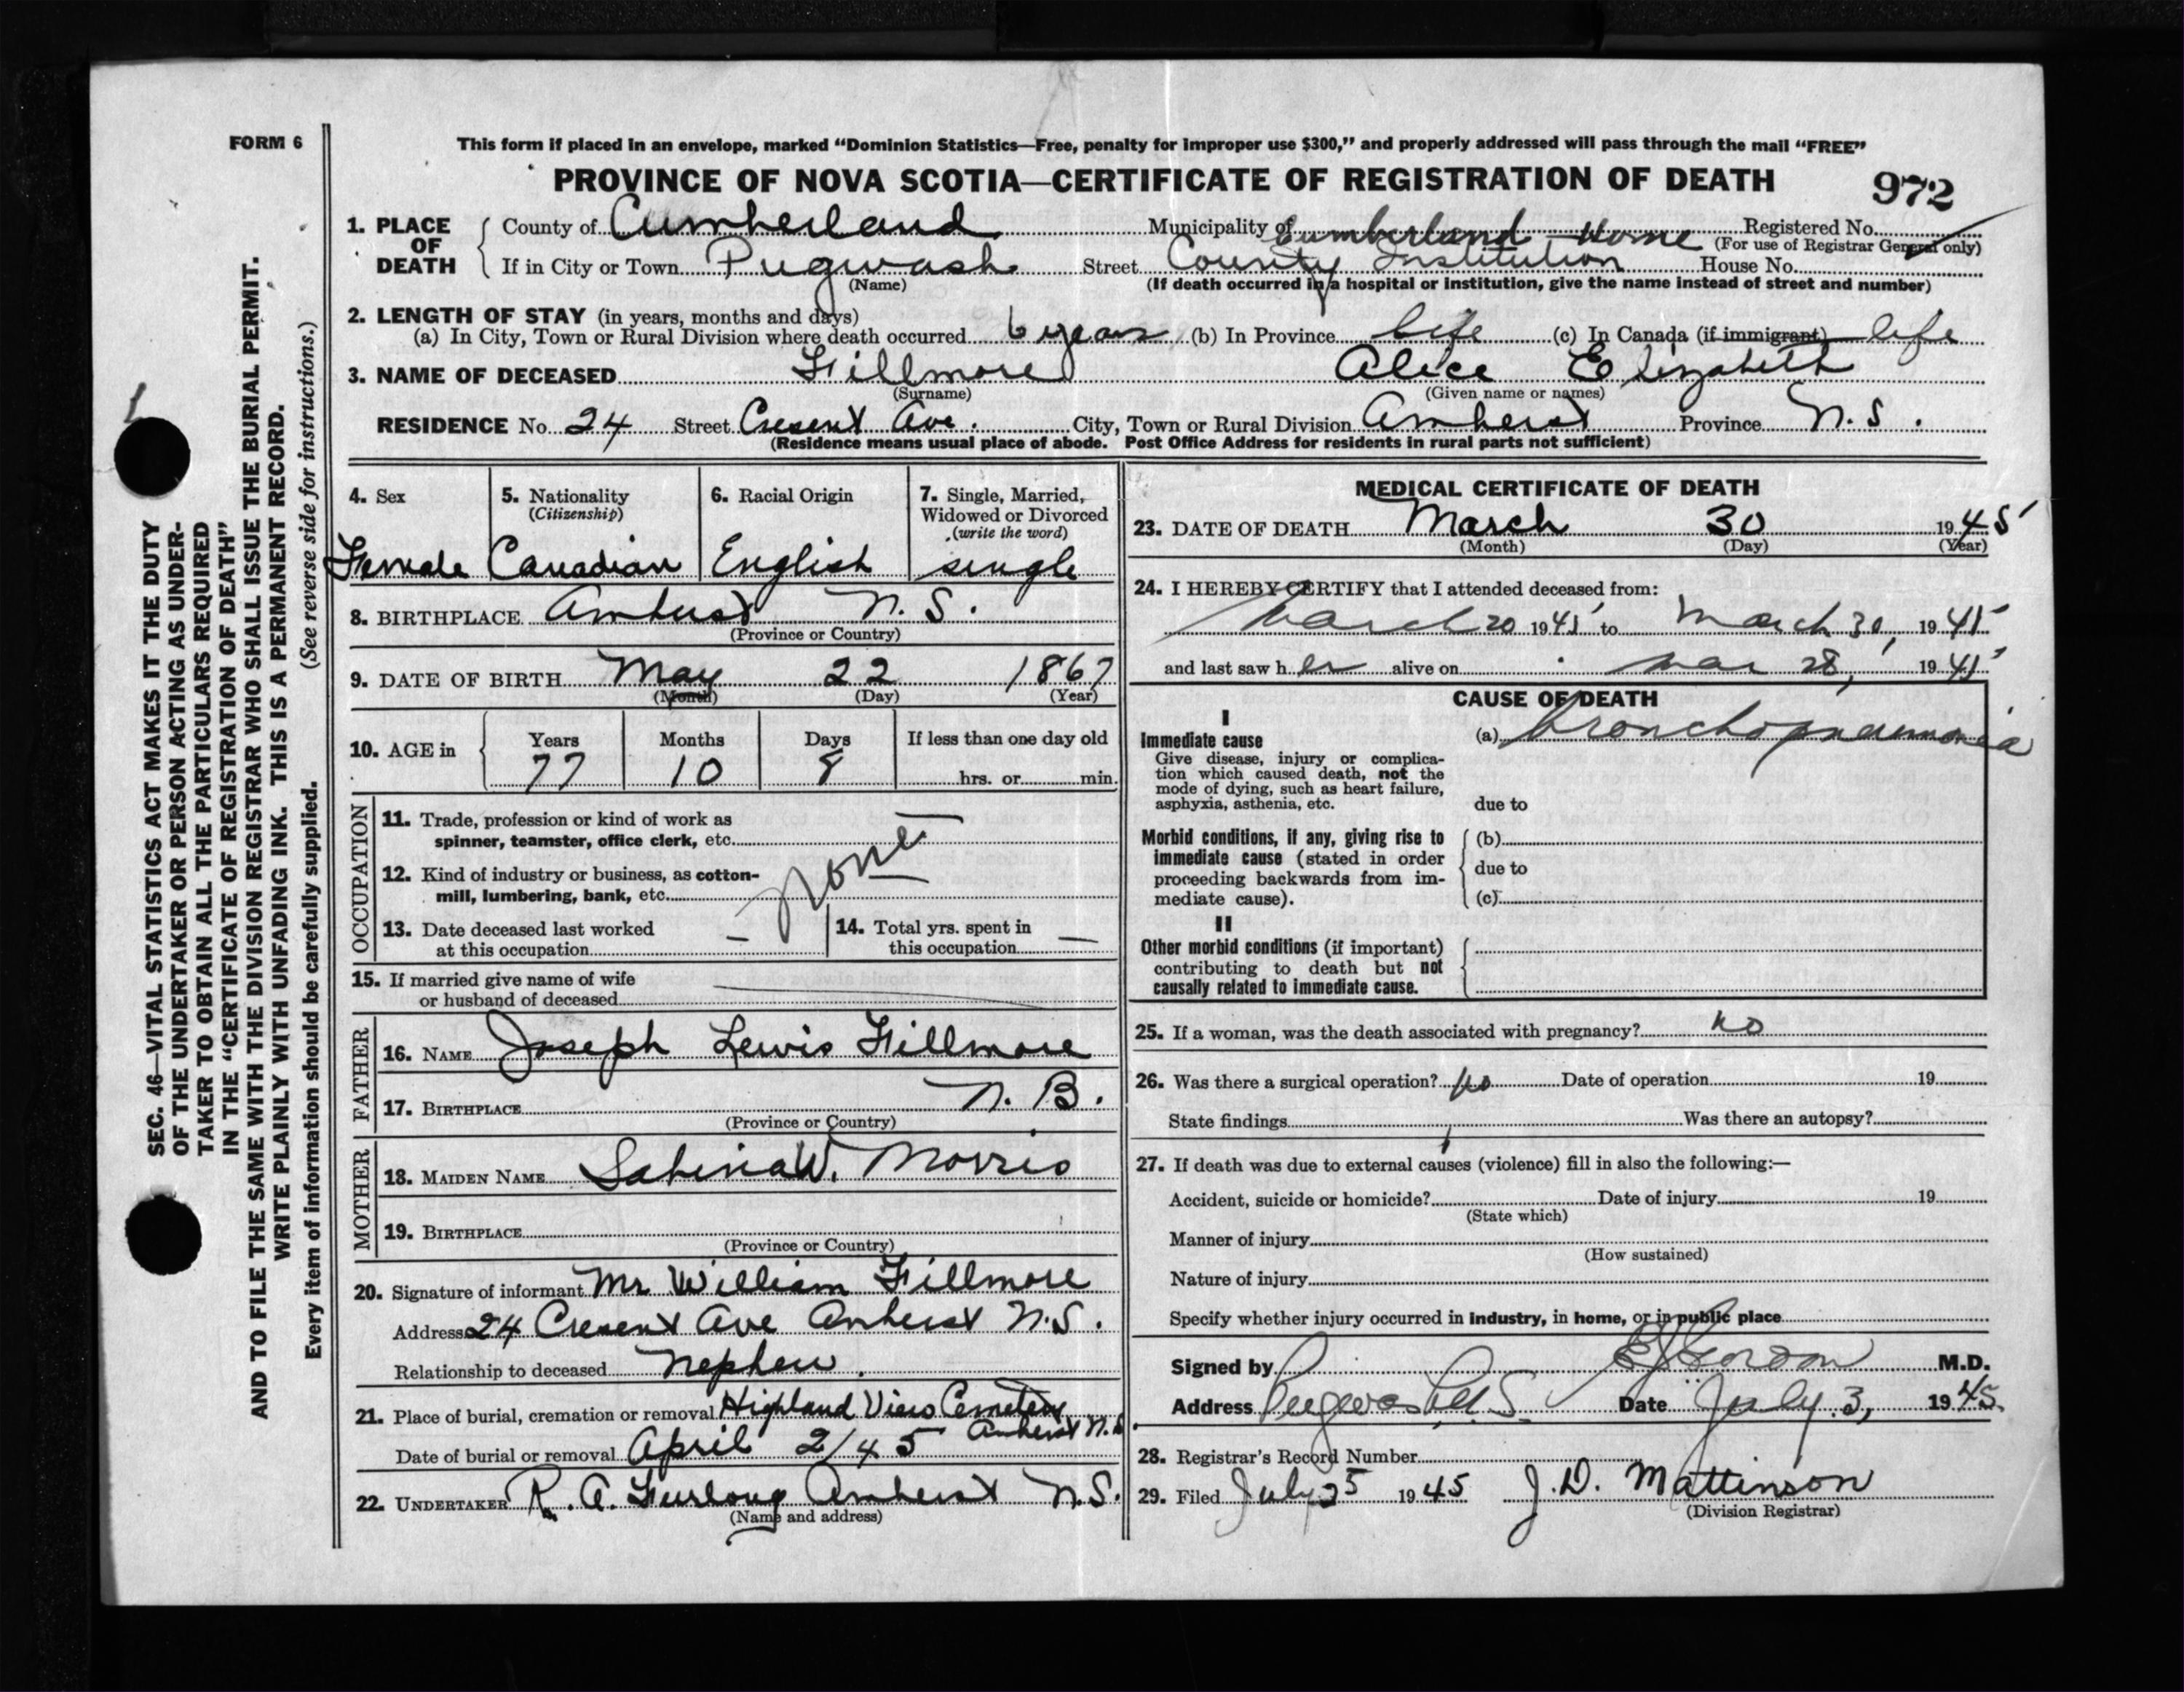 FORM 6
This form if placed in an envelope, marked “Dominion Statistics—Free, penalty for improper use $300,” and properly addressed will pass through the mail “FREE”
PROVINCE OF NOVA SCOTIA—CERTIFICATE OF REGISTRATION OF DEATH
972
1. PLACE OF DEATH
County of Cumberland Municipality of Cumberland Home Registered No.
(For use of Registrar General only)
If in City or Town Pugwash Street County Institution House No.
(Name)
(If death occurred in a hospital or institution, give the name instead of street and number)
2. LENGTH OF STAY (in years, months and days)
(a) In City, Town or Rural Division where death occurred 6 years (b) In Province life (c) In Canada (if immigrant) life
3. NAME OF DECEASED Fillmore Alice Elizabeth
(Surname) (Given name or names)
RESIDENCE No. 24 Street Cresent Ave. City, Town or Rural Division Amherst Province N.S.
(Residence means usual place of abode. Post Office Address for residents in rural parts not sufficient)
4. Sex
Female
5. Nationality
(Citizenship)
Canadian
6. Racial Origin
English
7. Single, Married,
Widowed or Divorced
(write the word)
single
8. BIRTHPLACE Amherst N.S.
(Province or Country)
9. DATE OF BIRTH May 22 1867
(Month) (Day) (Year)
10. AGE in
Years Months Days If less than one day old
77 10 8 hrs. or min.
OCCUPATION
11. Trade, profession or kind of work as
spinner, teamster, office clerk, etc.
None
12. Kind of industry or business, as cotton-
mill, lumbering, bank, etc.
13. Date deceased last worked
at this occupation –
14. Total yrs. spent in
this occupation —
15. If married give name of wife
or husband of deceased
FATHER
16. NAME Joseph Lewis Fillmore
17. BIRTHPLACE N.B.
(Province or Country)
MOTHER
18. MAIDEN NAME Sabina W. Morris
19. BIRTHPLACE
(Province or Country)
20. Signature of informant Mr William Fillmore
Address 24 Cresent Ave Amherst N.S.
Relationship to deceased Nephew.
21. Place of burial, cremation or removal Highland View Cemetery
Amherst N.S.
Date of burial or removal April 2/45
22. UNDERTAKER R. A. Furlong Amherst N.S.
(Name and address)
MEDICAL CERTIFICATE OF DEATH
23. DATE OF DEATH March 30 1945
(Month) (Day) (Year)
24. I HEREBY CERTIFY that I attended deceased from:
March 20 1945 to March 30, 1945
and last saw her alive on Mar 28, 1945
CAUSE OF DEATH
I
Immediate cause
(a) bronchopneumonia
Give disease, injury or complica-
tion which caused death, not the
mode of dying, such as heart failure,
asphyxia, asthenia, etc.
due to
Morbid conditions, if any, giving rise to
immediate cause (stated in order
proceeding backwards from im-
mediate cause).
(b)
due to
(c)
II
Other morbid conditions (if important)
contributing to death but not
causally related to immediate cause.
25. If a woman, was the death associated with pregnancy? no
26. Was there a surgical operation? no Date of operation 19
State findings Was there an autopsy?
27. If death was due to external causes (violence) fill in also the following:—
Accident, suicide or homicide? Date of injury 19
(State which)
Manner of injury
(How sustained)
Nature of injury
Specify whether injury occurred in industry, in home, or in public place
Signed by Gordon M.D.
Address Pugwash N.S. Date July 3, 1945
28. Registrar's Record Number
29. Filed July 25 1945 J. D. Mattinson
(Division Registrar)
SEC. 46—VITAL STATISTICS ACT MAKES IT THE DUTY
OF THE UNDERTAKER OR PERSON ACTING AS UNDER-
TAKER TO OBTAIN ALL THE PARTICULARS REQUIRED
IN THE “CERTIFICATE OF REGISTRATION OF DEATH”
AND TO FILE THE SAME WITH THE DIVISION REGISTRAR WHO SHALL ISSUE THE BURIAL PERMIT.
WRITE PLAINLY WITH UNFADING INK. THIS IS A PERMANENT RECORD.
Every item of information should be carefully supplied. (See reverse side for instructions.)